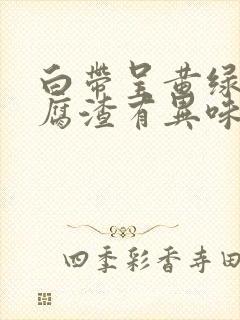 白帶呈黄绿
腐渣有異味
四季彩香寺田